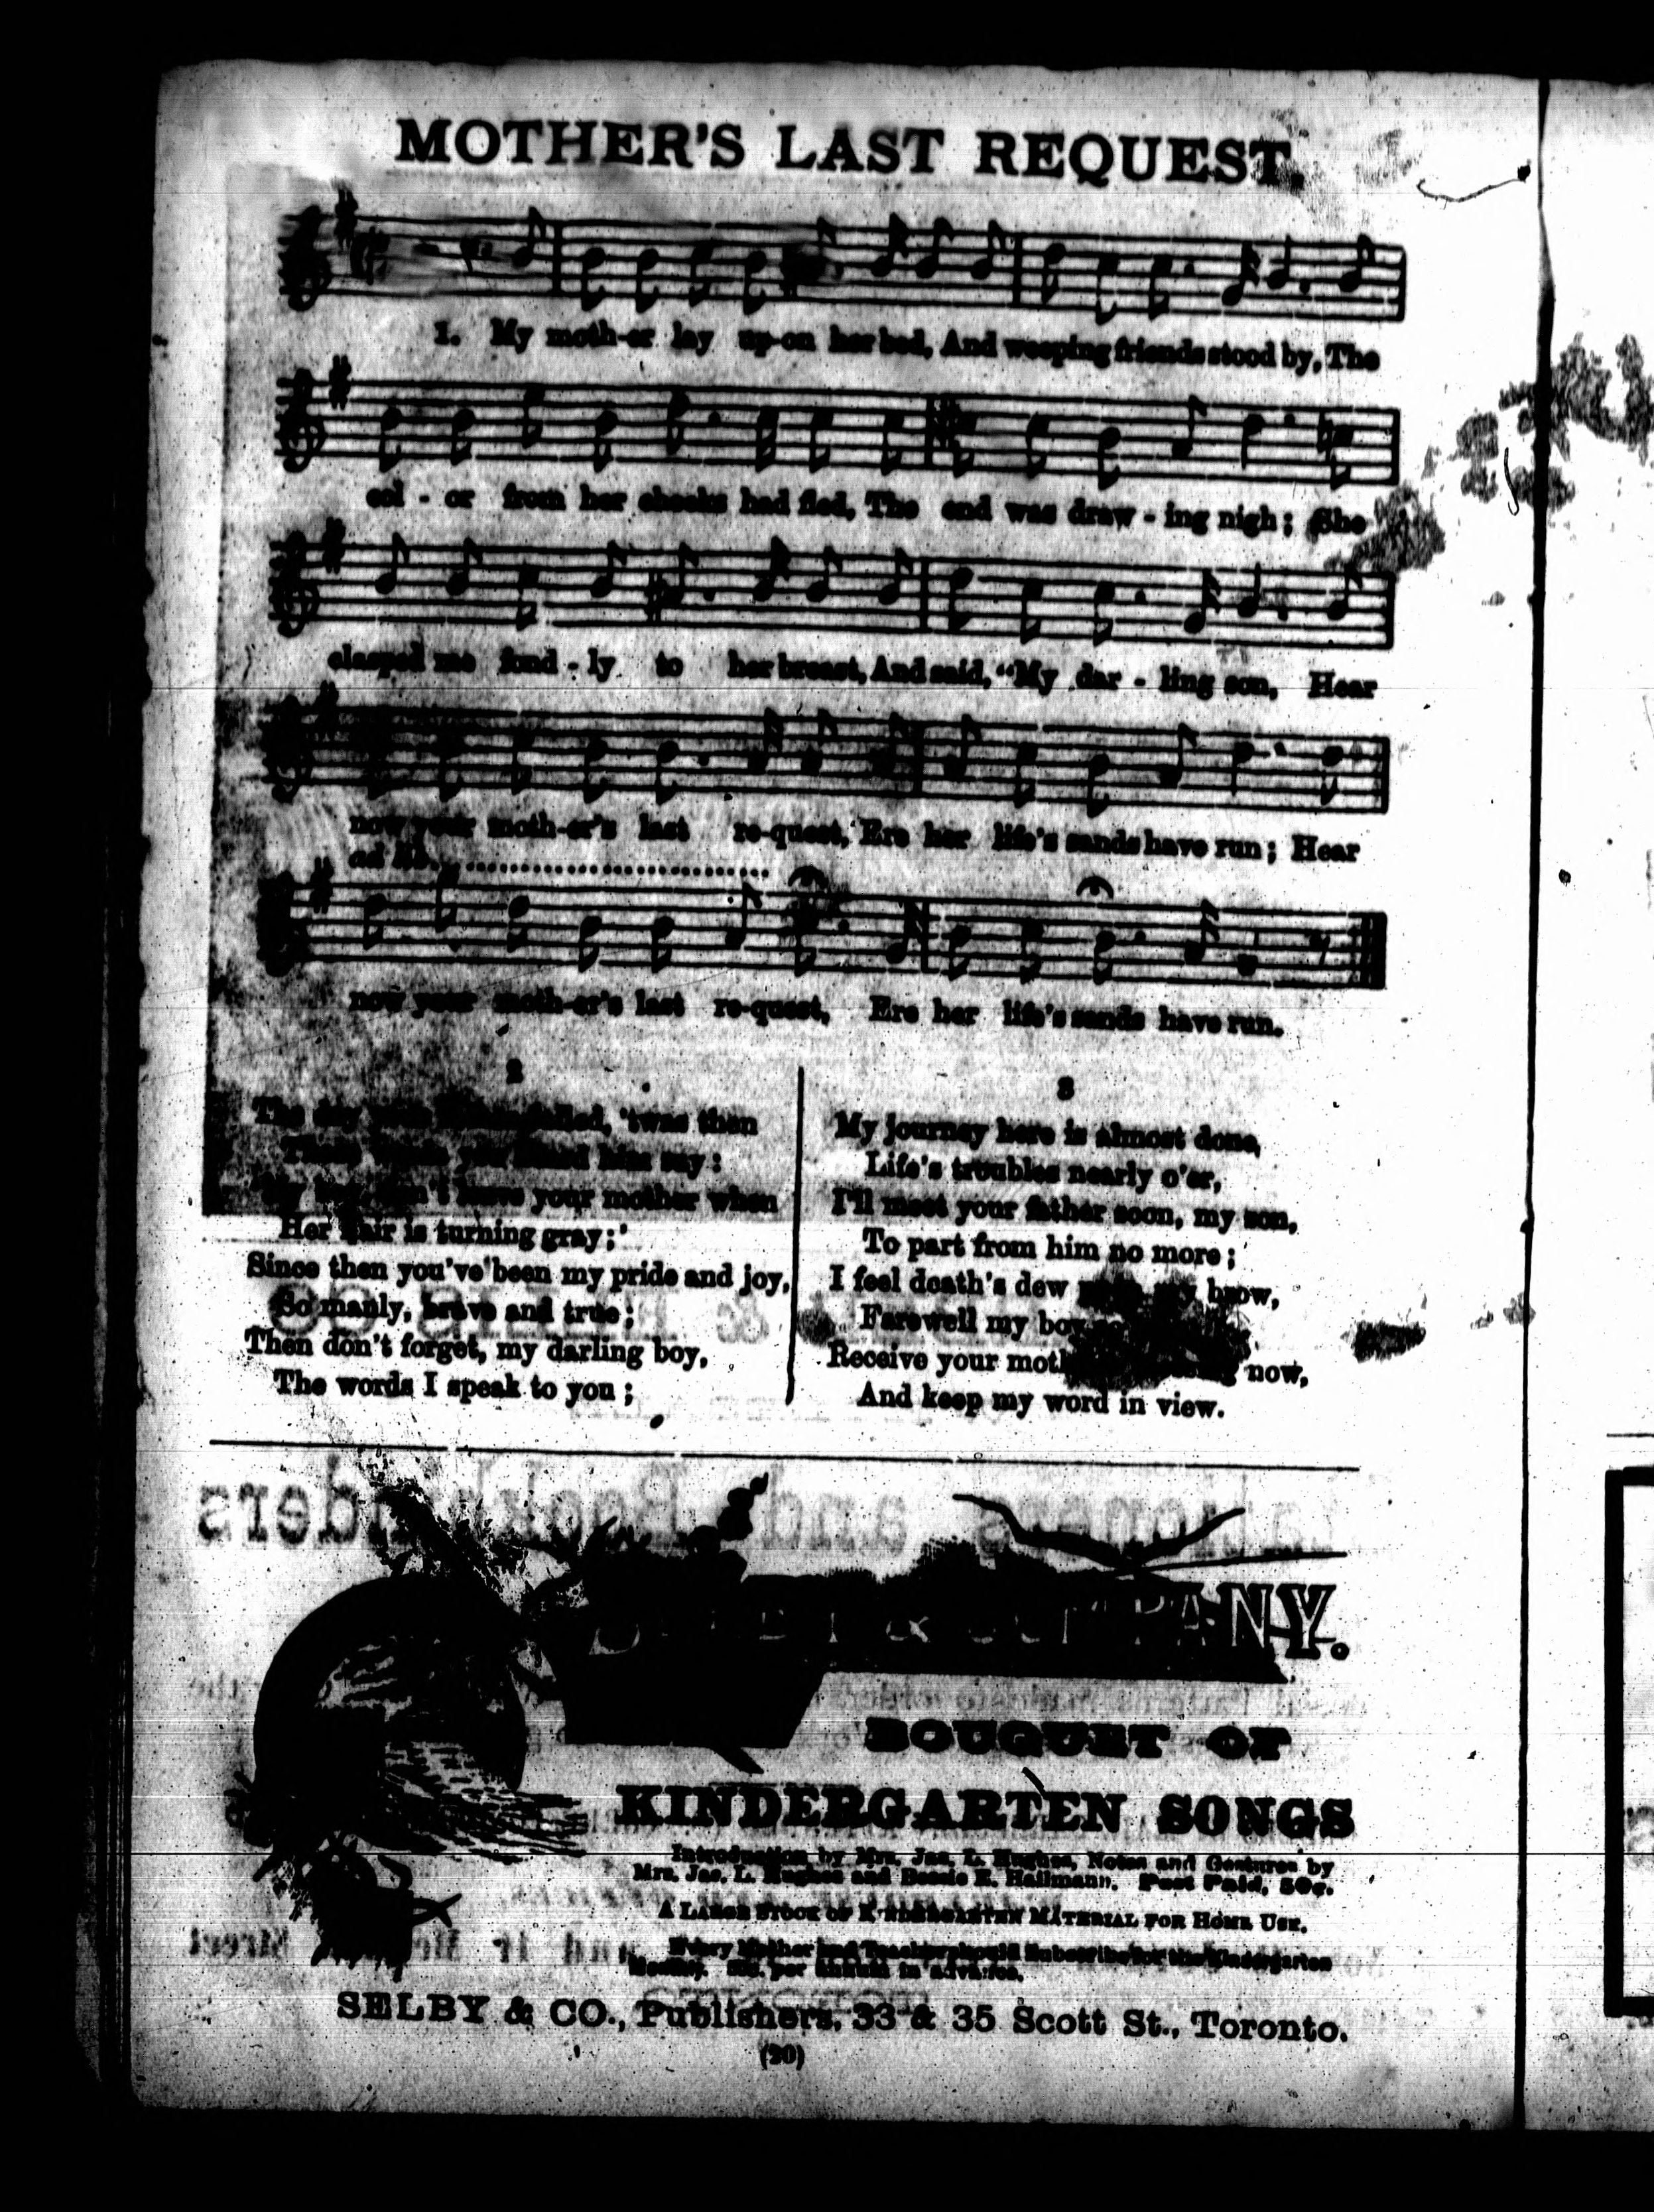 MOTHER'S LAST REQUEST.
1. My moth-er lay up-on her bed, And weeping friends stood by, The
col - or from her cheeks had fled, The end was draw - ing nigh; She
clasped me fond - ly to her breast, And said, "My dar - ling son, Hear
now your moth-er's last re-quest, Ere her life's sands have run; Hear
ad lib.
now your moth-er's last re-quest, Ere her life's sands have run.
2
The day your 'twas then
your him say:
don't leave your mother when
Her hair is turning gray;'
Since then you've been my pride and joy,
So manly, brave and true;
Then don't forget, my darling boy,
The words I speak to you;
3
My journey here is almost done,
Life's troubles nearly o'er,
I'll meet your father soon, my son,
To part from him no more;
I feel death's dew my brow,
Farewell my boy
Receive your now,
And keep my word in view.
& COMPANY.
BOUQUET OF
KINDERGARTEN SONGS
Introduction by Mrs. Jas. L. Hughes, Notes and Gestures by
Mrs. Jas. L. Hughes and Bessie E. Hailmann. Post Paid, 50c.
A LARGE STOCK OF KINDERGARTEN MATERIAL FOR HOME USE.
Every Mother and Teacher should Subscribe for the Kindergarten
per annum in advance.
SELBY & CO., Publishers, 33 & 35 Scott St., Toronto.
(20)